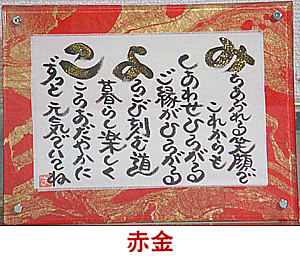 みちあふれる笑顔で
これからも
しあわせひろがる
ご縁がひろがる
よろこび刻む道
暮らし楽しく
こころおだやかに
ずっと元気でいてね
赤金